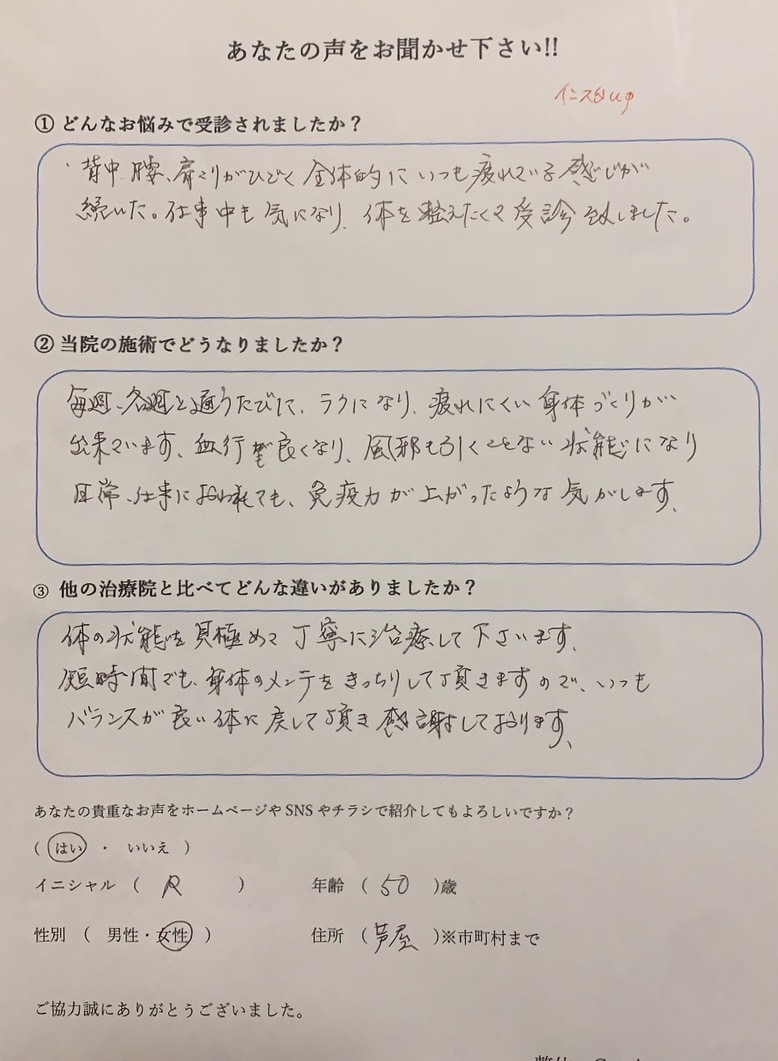 あなたの声をお聞かせ下さい!!
インスタup
① どんなお悩みで受診されましたか？
背中、腰、肩こりがひどく全体的にいつも疲れている感じが
続いた。仕事中も気になり、体を整えたくて受診致しました。
② 当院の施術でどうなりましたか？
毎週、各週と通うたびに、ラクになり、疲れにくい身体づくりが
出来ています、血行が良くなり、風邪も引くことない状態になり
日常、仕事におわれても、免疫力が上がったような気がします、
③ 他の治療院と比べてどんな違いがありましたか？
体の状態を見極めて丁寧に治療して下さいます、
短時間でも、身体のメンテをきっちりして頂きますので、いつも
バランスが良い体に戻して頂き感謝しております、
あなたの貴重なお声をホームページや SNS やチラシで紹介してもよろしいですか？
（ はい ・ いいえ ）
イニシャル （ R ） 年齢 （ 50 ）歳
性別 （ 男性・女性 ） 住所 （ 芦屋 ）※市町村まで
ご協力誠にありがとうございました。